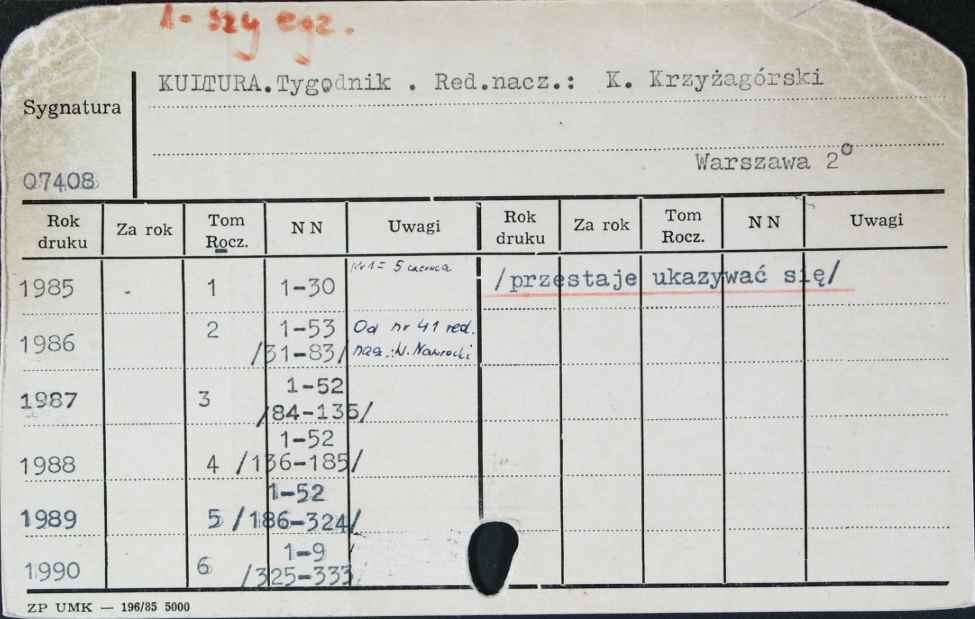 1-szy egz.
KULTURA.Tygodnik . Red.nacz.: K. Krzyżagórski
Sygnatura
Warszawa 2°
07408
Rok druku Za rok Tom Rocz. NN Uwagi Rok druku Za rok Tom Rocz. NN Uwagi
Nr 1 = 5 czerwca
1985 - 1 1-30 /przestaje ukazywać się/
1986 2 1-53 Od nr 41 red.
/31-83/ nacz.: W. Nawrocki
1987 3 1-52
/84-135/
1988 4 1-52
/136-185/
1989 5 1-52
/186-324/
1990 6 1-9
/325-333
ZP UMK — 196/85 5000